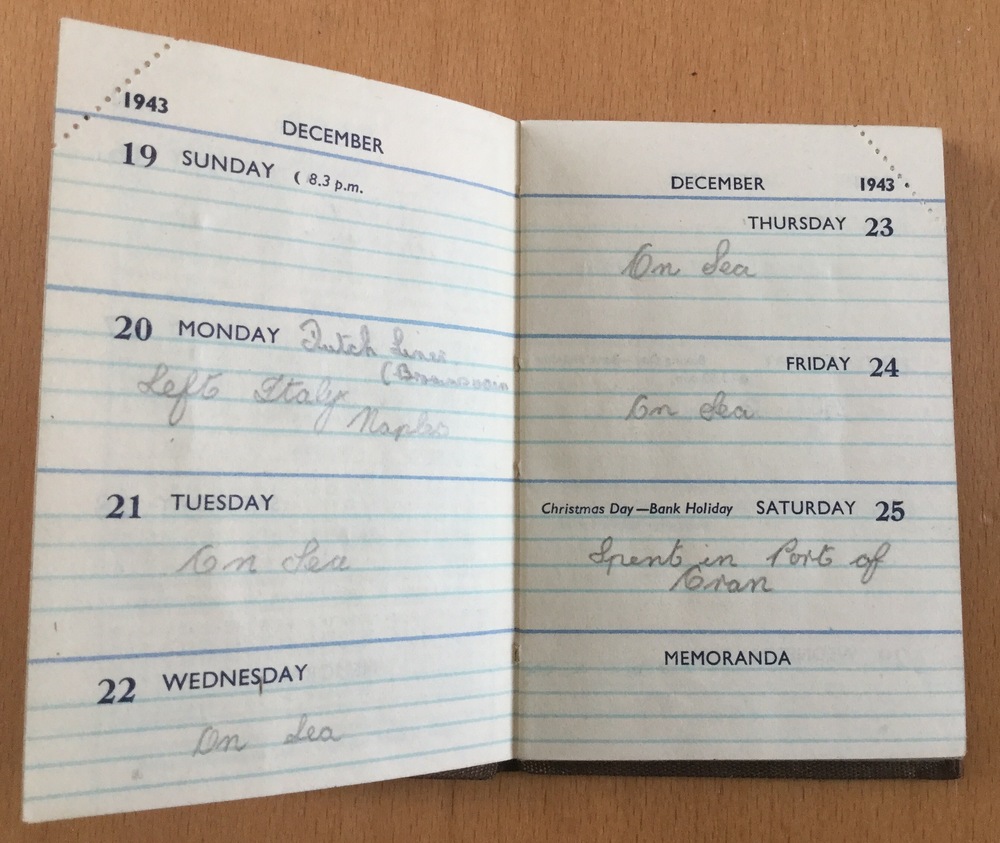 1943
DECEMBER
19 SUNDAY ( 8.3 p.m.
20 MONDAY Dutch Liner
Left Italy
Naples
21 TUESDAY
On Sea
22 WEDNESDAY
On Sea
DECEMBER 1943
THURSDAY 23
On Sea
FRIDAY 24
On Sea
Christmas Day—Bank Holiday SATURDAY 25
Spent in Port of
Oran
MEMORANDA